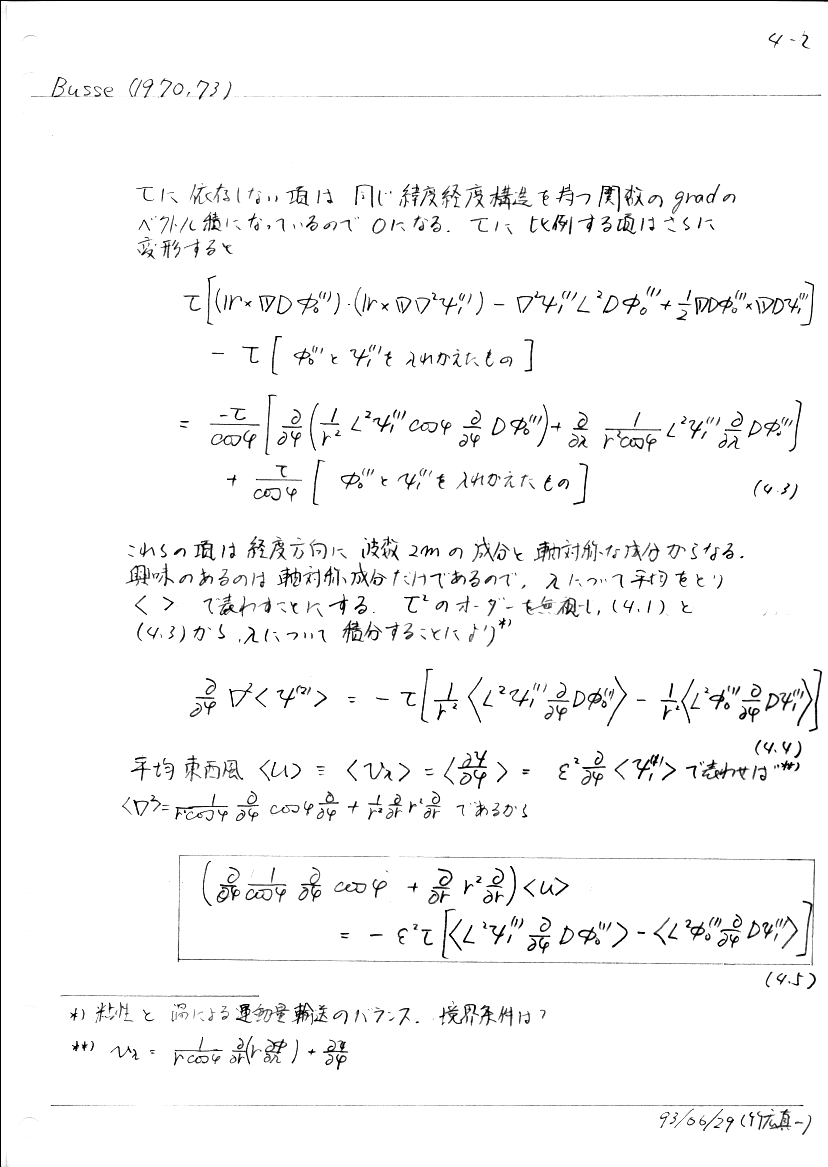 4-2
Busse (1970, 73)
τに 依存しない項は 同じ緯度経度構造を持つ関数の gradの
ベクトル積になっているので 0になる. τに 比例する項はさらに
変形すると
τ[(𝕣×∇DΦ₀⁽¹⁾)·(𝕣×∇∇²Ψ₁⁽¹⁾) − ∇²Ψ₁⁽¹⁾L²DΦ₀⁽¹⁾ + 1/2 ∇DΦ₀⁽¹⁾×∇DΨ₁⁽¹⁾]
− τ[ Φ₀⁽¹⁾と Ψ₁⁽¹⁾を 入れかえたもの ]
= −τ/cosφ [∂/∂φ (1/r² L²Ψ₁⁽¹⁾ cosφ ∂/∂φ DΦ₀⁽¹⁾) + ∂/∂λ 1/(r²cosφ) L²Ψ₁⁽¹⁾ ∂/∂λ DΦ₀⁽¹⁾]
+ τ/cosφ [ Φ₀⁽¹⁾と Ψ₁⁽¹⁾を 入れかえたもの ] (4.3)
これらの項は 経度方向に 波数 2mの 成分と 軸対称な成分からなる.
興味のあるのは 軸対称成分だけであるので, λについて平均をとり
< > で表わすことにする. τ²のオーダーを無視し, (4.1) と
(4.3)から, λについて 積分することにより*)
∂/∂φ ∇²<Ψ⁽²⁾> = − τ[1/r² <L²Ψ₁⁽¹⁾ ∂/∂φ DΦ₀⁽¹⁾> − 1/r² <L²Φ₀⁽¹⁾ ∂/∂φ DΨ₁⁽¹⁾>]
(4.4)
平均東西風 <U> ≡ <v_λ> = <∂Ψ/∂φ> = ε² ∂/∂φ <Ψ₁⁽⁴⁾> で表わせば **)
<∇²>= 1/(r²cosφ) ∂/∂φ cosφ ∂/∂φ + 1/r² ∂/∂r r² ∂/∂r であるから
(∂/∂φ 1/cosφ ∂/∂φ cosφ + ∂/∂r r² ∂/∂r)<U>
= − ε²τ[<L²Ψ₁⁽¹⁾ ∂/∂φ DΦ₀⁽¹⁾> − <L²Φ₀⁽¹⁾ ∂/∂φ DΨ₁⁽¹⁾>]
(4.5)
*) 粘性と 渦による運動量輸送のバランス. 境界条件は?
**) v_λ = 1/(r cosφ) ∂/∂r (r ∂Φ/∂λ) + ∂Ψ/∂φ
93/06/29(竹広真一)